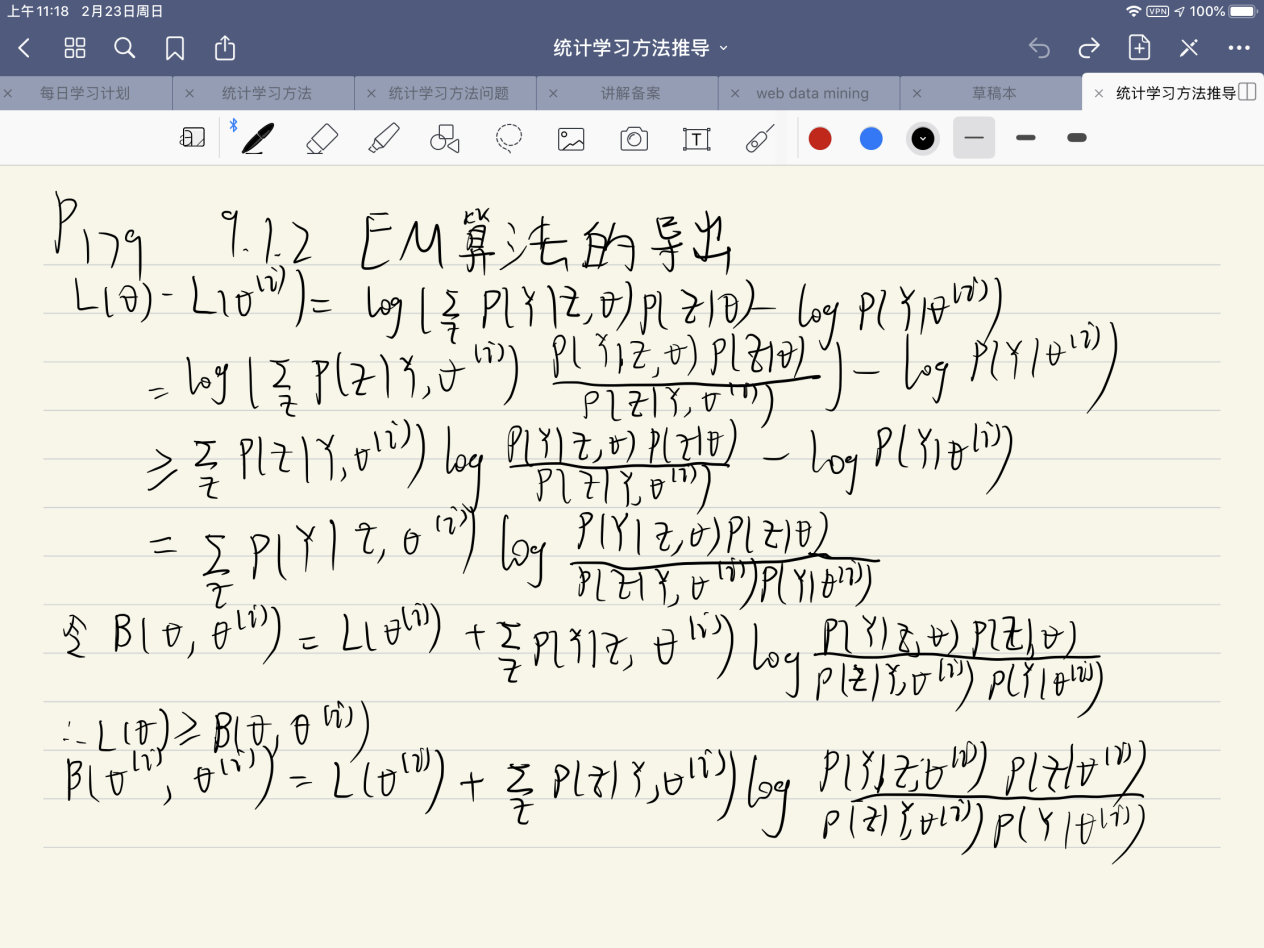 上午11:18 2月23日周日 VPN 100%
统计学习方法推导
每日学习计划 统计学习方法 统计学习方法问题 讲解备案 web data mining 草稿本 统计学习方法推导
P179 9.1.2 EM算法的导出
L(θ) - L(θ^(i)) = log(∑_Z P(Y|Z,θ)P(Z|θ) - log P(Y|θ^(i))
= log(∑_Z P(Z|Y,θ^(i)) \frac{P(Y|Z,θ)P(Z|θ)}{P(Z|Y,θ^(i))}) - log P(Y|θ^(i))
≥ ∑_Z P(Z|Y,θ^(i)) log \frac{P(Y|Z,θ)P(Z|θ)}{P(Z|Y,θ^(i))} - log P(Y|θ^(i))
= ∑_Z P(Y|Z,θ^(i)) log \frac{P(Y|Z,θ)P(Z|θ)}{P(Z|Y,θ^(i))P(Y|θ^(i))}
令 B(θ,θ^(i)) = L(θ^(i)) + ∑_Z P(Y|Z,θ^(i)) log \frac{P(Y|Z,θ)P(Z|θ)}{P(Z|Y,θ^(i))P(Y|θ^(i))}
∴ L(θ) ≥ B(θ,θ^(i))
B(θ^(i),θ^(i)) = L(θ^(i)) + ∑_Z P(Z|Y,θ^(i)) log \frac{P(Y|Z,θ^(i))P(Z|θ^(i))}{P(Z|Y,θ^(i))P(Y|θ^(i))}